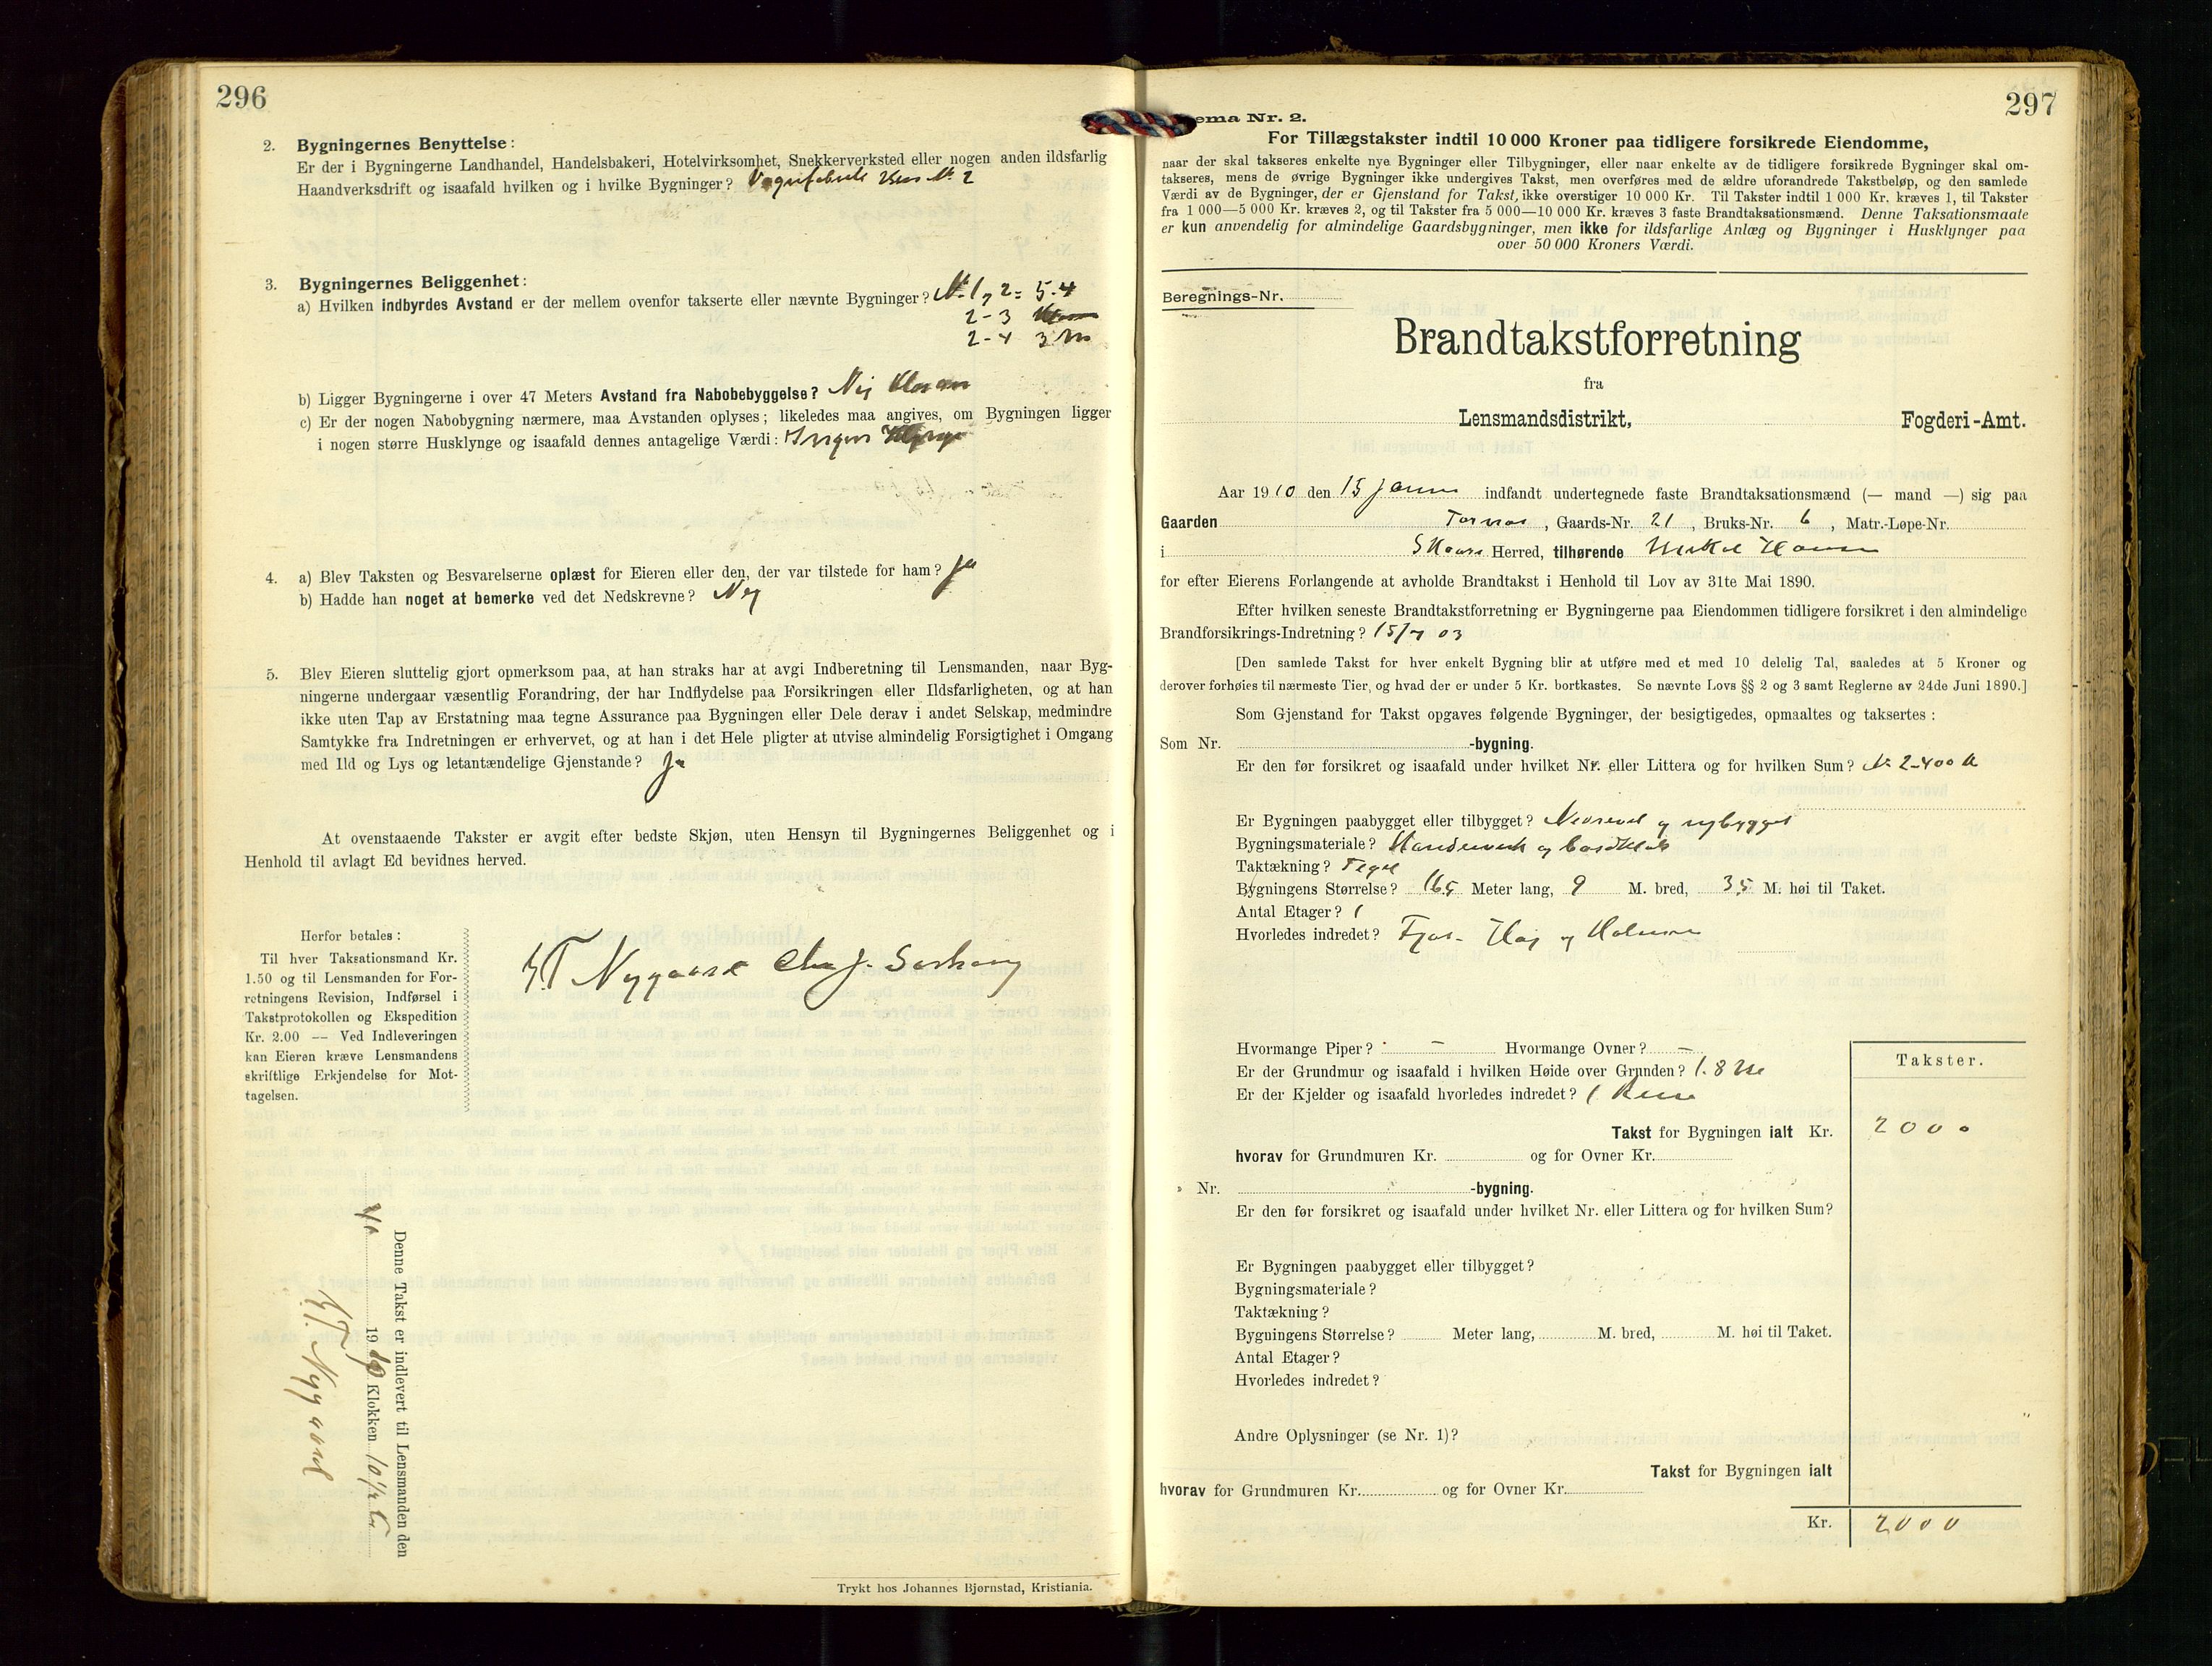 296
2. Bygningernes Benyttelse:
Er der i Bygningerne Landhandel, Handelsbakeri, Hotelvirksomhet, Snekkerverksted eller nogen anden ildsfarlig
Haandverksdrift og isaafald hvilken og i hvilke Bygninger? No 2
3. Bygningernes Beliggenhet:
a) Hvilken indbyrdes Avstand er der mellem ovenfor takserte eller nævnte Bygninger? No 1, 2 = 5.4
2-3
2-4 3 m
b) Ligger Bygningerne i over 47 Meters Avstand fra Nabobebyggelse? Nej
c) Er der nogen Nabobygning nærmere, maa Avstanden oplyses; likeledes maa angives, om Bygningen ligger
i nogen større Husklynge og isaafald dennes antagelige Værdi: Ingen
4. a) Blev Taksten og Besvarelserne oplæst for Eieren eller den, der var tilstede for ham? Ja
b) Hadde han noget at bemerke ved det Nedskrevne? Nej
5. Blev Eieren sluttelig gjort opmerksom paa, at han straks har at avgi Indberetning til Lensmanden, naar Byg-
ningerne undergaar væsentlig Forandring, der har Indflydelse paa Forsikringen eller Ildsfarligheten, og at han
ikke uten Tap av Erstatning maa tegne Assurance paa Bygningen eller Dele derav i andet Selskap, medmindre
Samtykke fra Indretningen er erhvervet, og at han i det Hele pligter at utvise almindelig Forsigtighet i Omgang
med Ild og Lys og letantændelige Gjenstande? Ja
At ovenstaaende Takster er avgit efter bedste Skjøn, uten Hensyn til Bygningernes Beliggenhet og i
Henhold til avlagt Ed bevidnes herved.
Herfor betales:
Til hver Taksationsmand Kr.
1.50 og til Lensmanden for For-
retningens Revision, Indførsel i
Takstprotokollen og Ekspedition
Kr. 2.00 — Ved Indleveringen
kan Eieren kræve Lensmandens
skriftlige Erkjendelse for Mot-
tagelsen.
Nygaard
Denne Takst er indlevert til Lensmanden den
1910 Klokken 10 1/2
Nygaard
Trykt hos Johannes Bjørnstad, Kristiania.
297
ema Nr. 2.
For Tillægstakster indtil 10 000 Kroner paa tidligere forsikrede Eiendomme,
naar der skal takseres enkelte nye Bygninger eller Tilbygninger, eller naar enkelte av de tidligere forsikrede Bygninger skal om-
takseres, mens de øvrige Bygninger ikke undergives Takst, men overføres med de ældre uforandrede Takstbeløp, og den samlede
Værdi av de Bygninger, der er Gjenstand for Takst, ikke overstiger 10 000 Kr. Til Takster indtil 1 000 Kr. kræves 1, til Takster
fra 1 000—5 000 Kr. kræves 2, og til Takster fra 5 000—10 000 Kr. kræves 3 faste Brandtaksationsmænd. Denne Taksationsmaate
er kun anvendelig for almindelige Gaardsbygninger, men ikke for ildsfarlige Anlæg og Bygninger i Husklynger paa
over 50 000 Kroners Værdi.
Beregnings-Nr.
Brandtakstforretning
fra
Lensmandsdistrikt, Fogderi-Amt.
Aar 1910 den 15 indfandt undertegnede faste Brandtaksationsmænd (— mand —) sig paa
Gaarden , Gaards-Nr. 21 , Bruks-Nr. 6 , Matr.-Løpe-Nr.
i Herred, tilhørende
for efter Eierens Forlangende at avholde Brandtakst i Henhold til Lov av 31te Mai 1890.
Efter hvilken seneste Brandtakstforretning er Bygningerne paa Eiendommen tidligere forsikret i den almindelige
Brandforsikrings-Indretning? 15/7 03
[Den samlede Takst for hver enkelt Bygning blir at utføre med et med 10 delelig Tal, saaledes at 5 Kroner og
derover forhøies til nærmeste Tier, og hvad der er under 5 Kr. bortkastes. Se nævnte Lovs §§ 2 og 3 samt Reglerne av 24de Juni 1890.]
Som Gjenstand for Takst opgaves følgende Bygninger, der besigtigedes, opmaaltes og taksertes:
Som Nr. -bygning.
Er den før forsikret og isaafald under hvilket Nr. eller Littera og for hvilken Sum? No 2-400 kr
Er Bygningen paabygget eller tilbygget? Nedrevet og nybygget
Bygningsmateriale? og
Taktækning? Tegel
Bygningens Størrelse? 16,5 Meter lang, 9 M. bred, 3,5 M. høi til Taket.
Antal Etager? 1
Hvorledes indredet? Fjøs - Høj og
Hvormange Piper? – Hvormange Ovner? –
Er der Grundmur og isaafald i hvilken Høide over Grunden? 1.8 m
Er der Kjelder og isaafald hvorledes indredet? 1
Takster.
Takst for Bygningen ialt Kr. 2000
hvorav for Grundmuren Kr. og for Ovner Kr.
» Nr. -bygning.
Er den før forsikret og isaafald under hvilket Nr. eller Littera og for hvilken Sum?
Er Bygningen paabygget eller tilbygget?
Bygningsmateriale?
Taktækning?
Bygningens Størrelse? Meter lang, M. bred, M. høi til Taket.
Antal Etager?
Hvorledes indredet?
Andre Oplysninger (se Nr. 1)?
Takst for Bygningen ialt
hvorav for Grundmuren Kr. og for Ovner Kr.
Kr. 2000